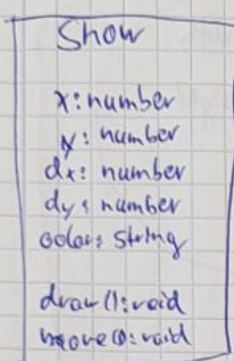 Show
x: number
y: number
dx: number
dy: number
color: String
draw(): void
move(): void